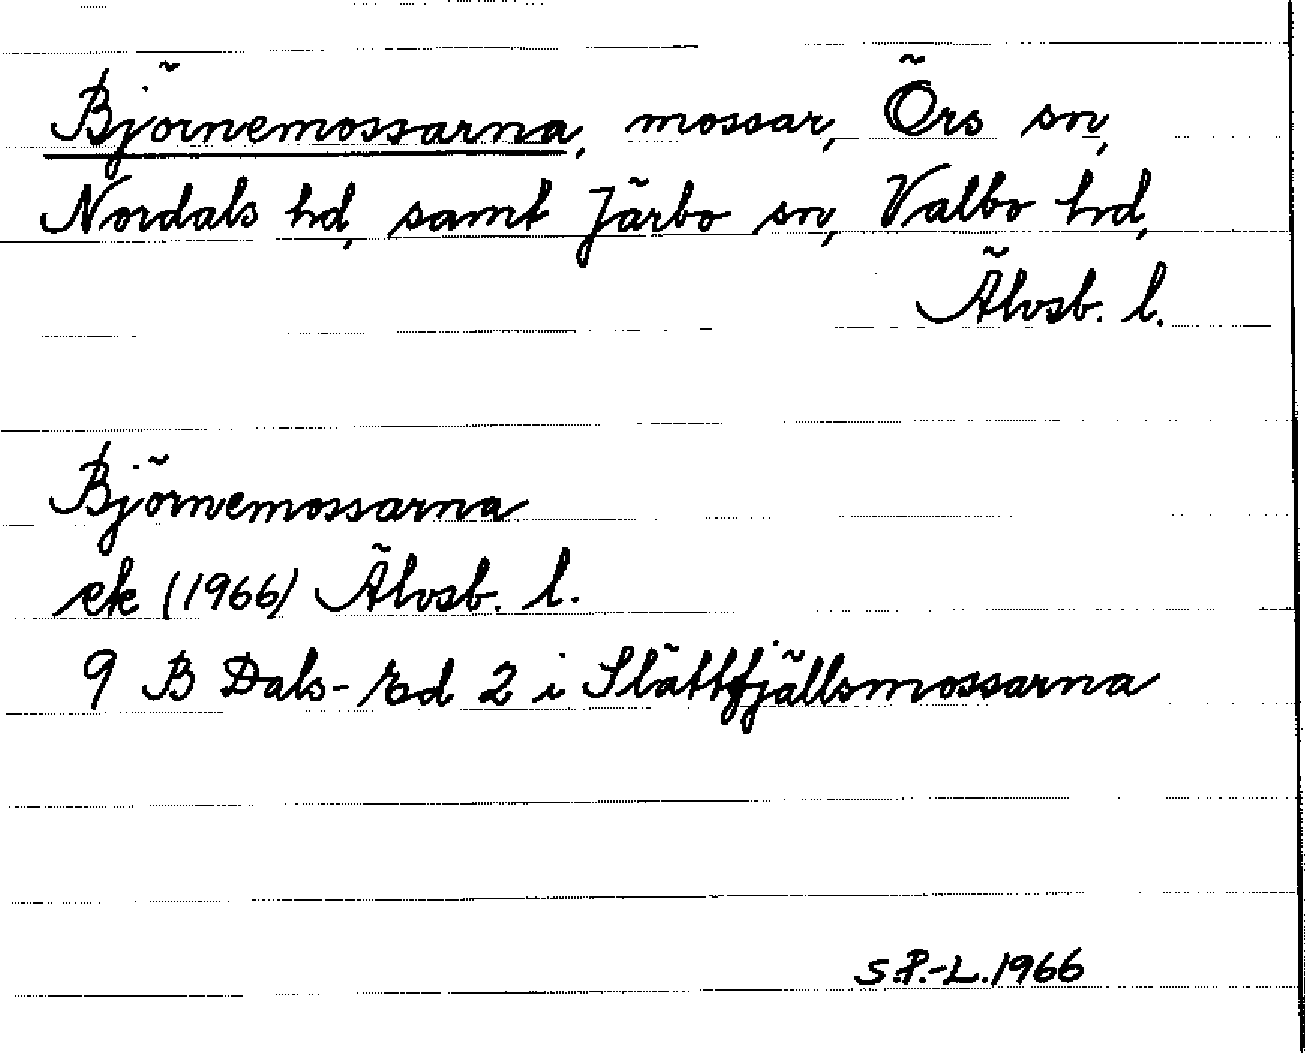 Björnemossarna, mossar, Örs sn,
Nordals hd, samt Järbo sn, Valbo hd,
Älvsb. l.
Björnemossarna
ek (1966) Älvsb. l.
9 B Dals-Ed 2 i Slättfjällsmossarna
S.P.-L. 1966